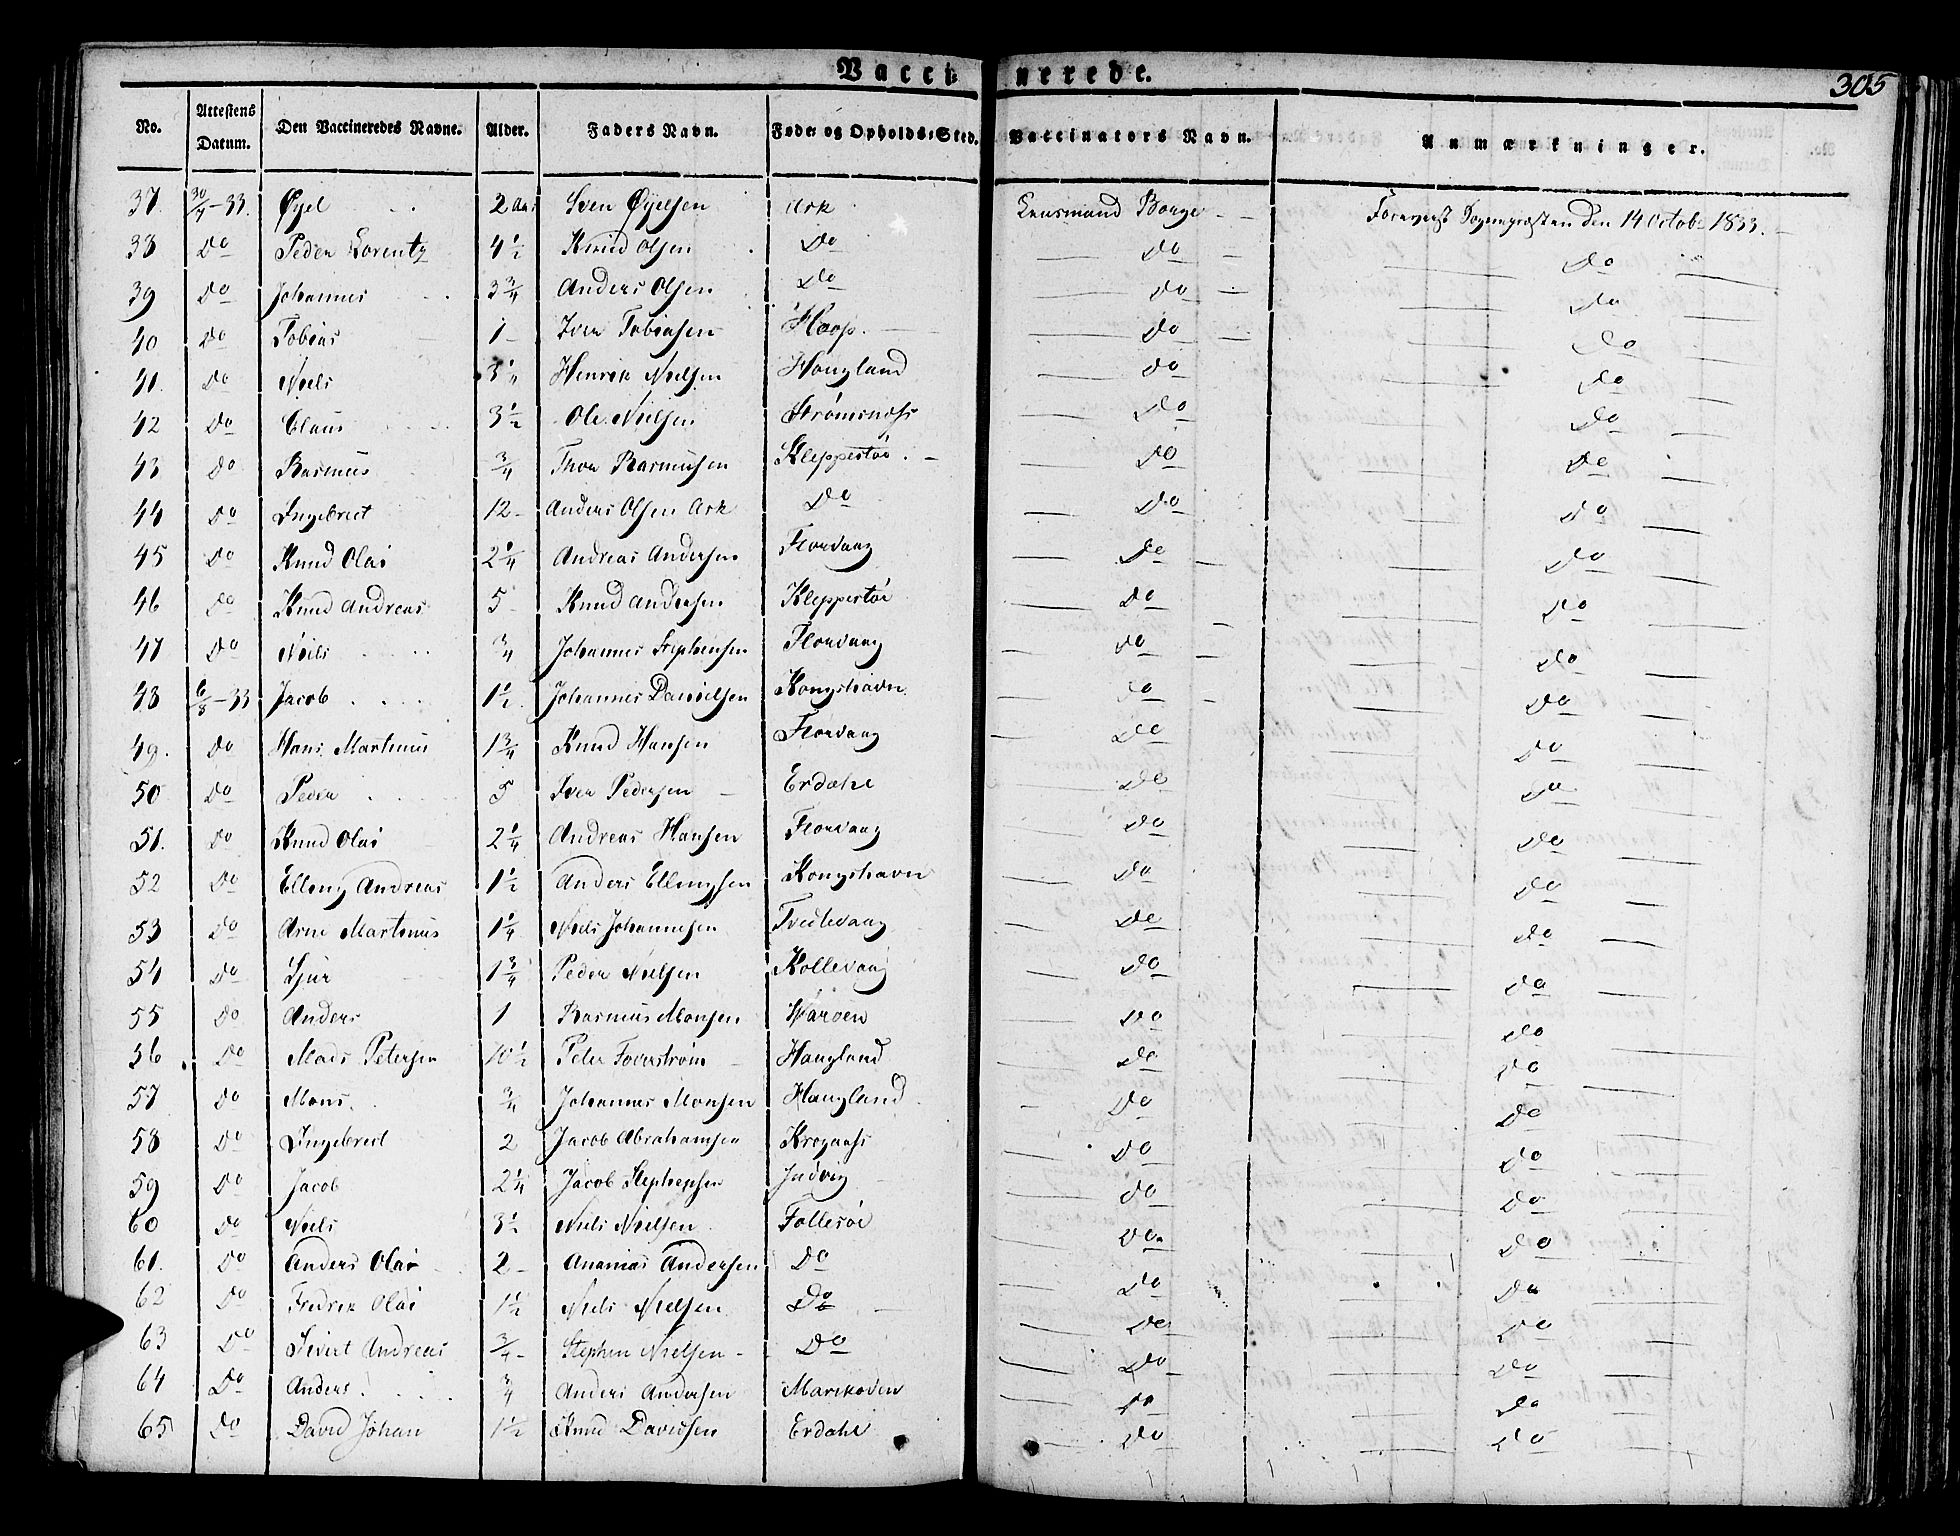 Vaccinerede.
305
No. Attestens Datum. Den Vaccineredes Navne. Alder. Faders Navn. Føde- og Opholds-Sted. Vaccinators Navn. Anmærkninger.
37. 30/4-33. Øyel 2 Aar Sven Øyelsen Ask Lensmand Borge den 14 Octobr 1833.
38 Do Peder Lorentz 4 1/2 Knud Olsen Do Do Do
39 Do Johannes 3 3/4 Anders Olsen Do Do Do
40 Do Tobias 1 Iver Tobiasen Hoop. Do Do
41. Do Niels 3 1/4 Henrik Nielsen Hougland Do Do
42 Do Claus 3 1/2 Ole Nielsen Strømsnæss Do Do
43 Do Rasmus 3/4 Thor Rasmusen Kleppestøe. Do Do
44 Do Ingebrect 12 Anders Olsen Ask Do Do Do
45 Do Knud Olai 2 1/4 Andreas Andersen Florvaag Do Do
46 Do Knud Andreas 5 Knud Andersen Kleppestøe Do Do
47 Do Niels 3/4 Johannes Stephensen Florvaag Do Do
48 6/8-33 Jacob 1 1/2 Johannes Danielsen Kongshavn Do Do
49. Do Hans Martinus 1 3/4 Knud Hansen Florvaag Do Do
50 Do Peder 5 Iver Pedersen Erdahl Do Do
51. Do Knud Olai 2 1/4 Andreas Hansen Florvaag Do Do
52 Do Elling Andreas 1 1/2 Anders Ellingsen Kongshavn Do Do
53 Do Arne Martinus 1 1/4 Niels Johannesen Tvedtevaag Do Do
54 Do Sjur 1 3/4 Peder Nielsen Kollevaag Do Do
55 Do Anders 1 Rasmus Monsen Do Do
56 Do Mads Petersen 10 1/2 Peter Haugland Do Do
57 Do Mons. 3/4 Johannes Monsen Haugland. Do Do
58 Do Ingebrect 2 Jacob Abrahamsen Krogaass Do Do
59 Do Jacob 2 1/4 Jacob Stephensen Judvig Do Do
60 Do Niels 3 1/2 Niels Nielsen Follesøe Do Do
61. Do Anders Olai 2 Ananias Andersen Do Do Do
62 Do Fredrik Olai 1 1/2 Niels Nielsen Do Do Do
63 Do Sivert Andreas 3/4 Stephen Nielsen Do Do Do
64 Do Anders 3/4 Anders Andersen Marikoven Do Do
65 Do David Johan 1 1/2 Knud Davidsen Erdahl Do Do